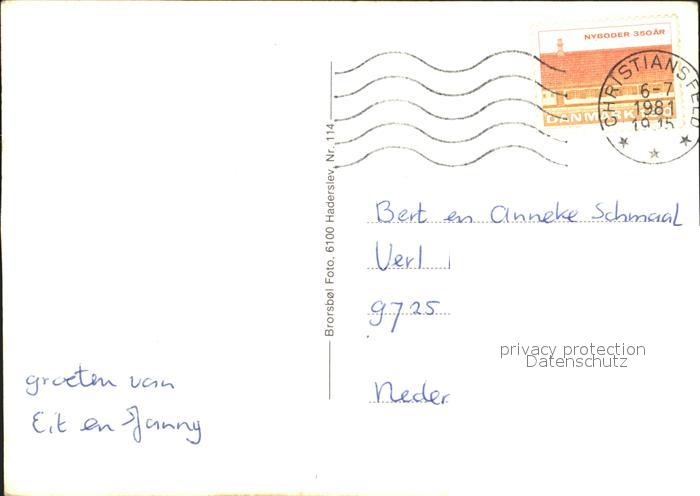 NYBODER 350 ÅR
DANMARK
CHRISTIANSFELD
6-7
1981
19.15
Brorsbøl Foto, 6100 Haderslev, Nr. 114
Bert en Anneke Schmaal
Verl
9725
privacy protection
Datenschutz
Neder
groeten van
Eit en Janny